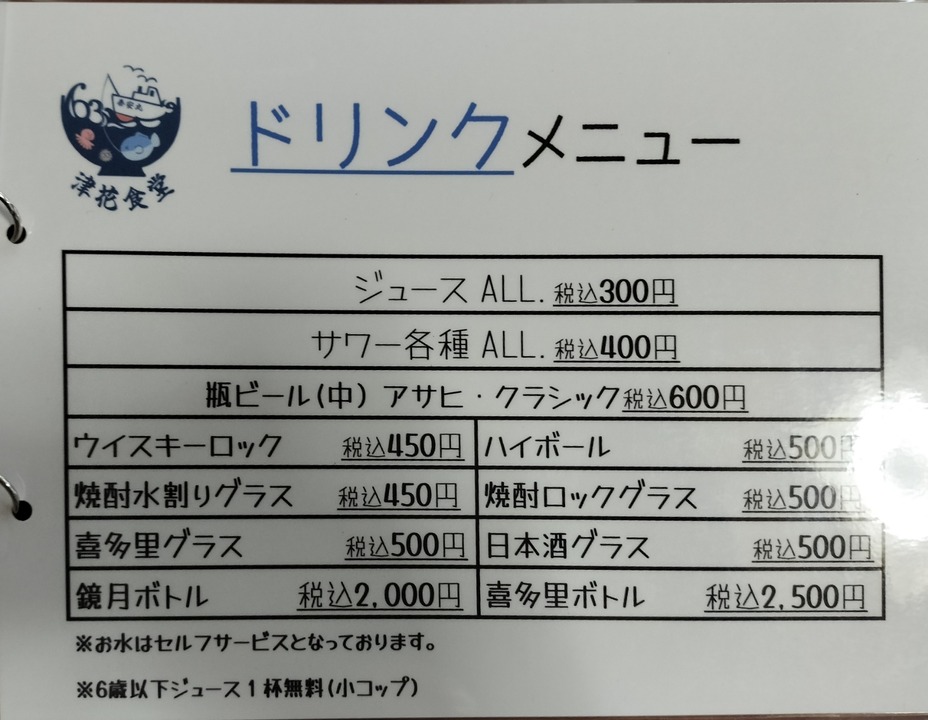 63
寿安丸
津花食堂
ドリンクメニュー
ジュース ALL. 税込300円
サワー各種 ALL. 税込400円
瓶ビール(中) アサヒ・クラシック税込600円
ウイスキーロック 税込450円 ハイボール 税込500円
焼酎水割りグラス 税込450円 焼酎ロックグラス 税込500円
喜多里グラス 税込500円 日本酒グラス 税込500円
鏡月ボトル 税込2,000円 喜多里ボトル 税込2,500円
※お水はセルフサービスとなっております。
※6歳以下ジュース1杯無料(小コップ)